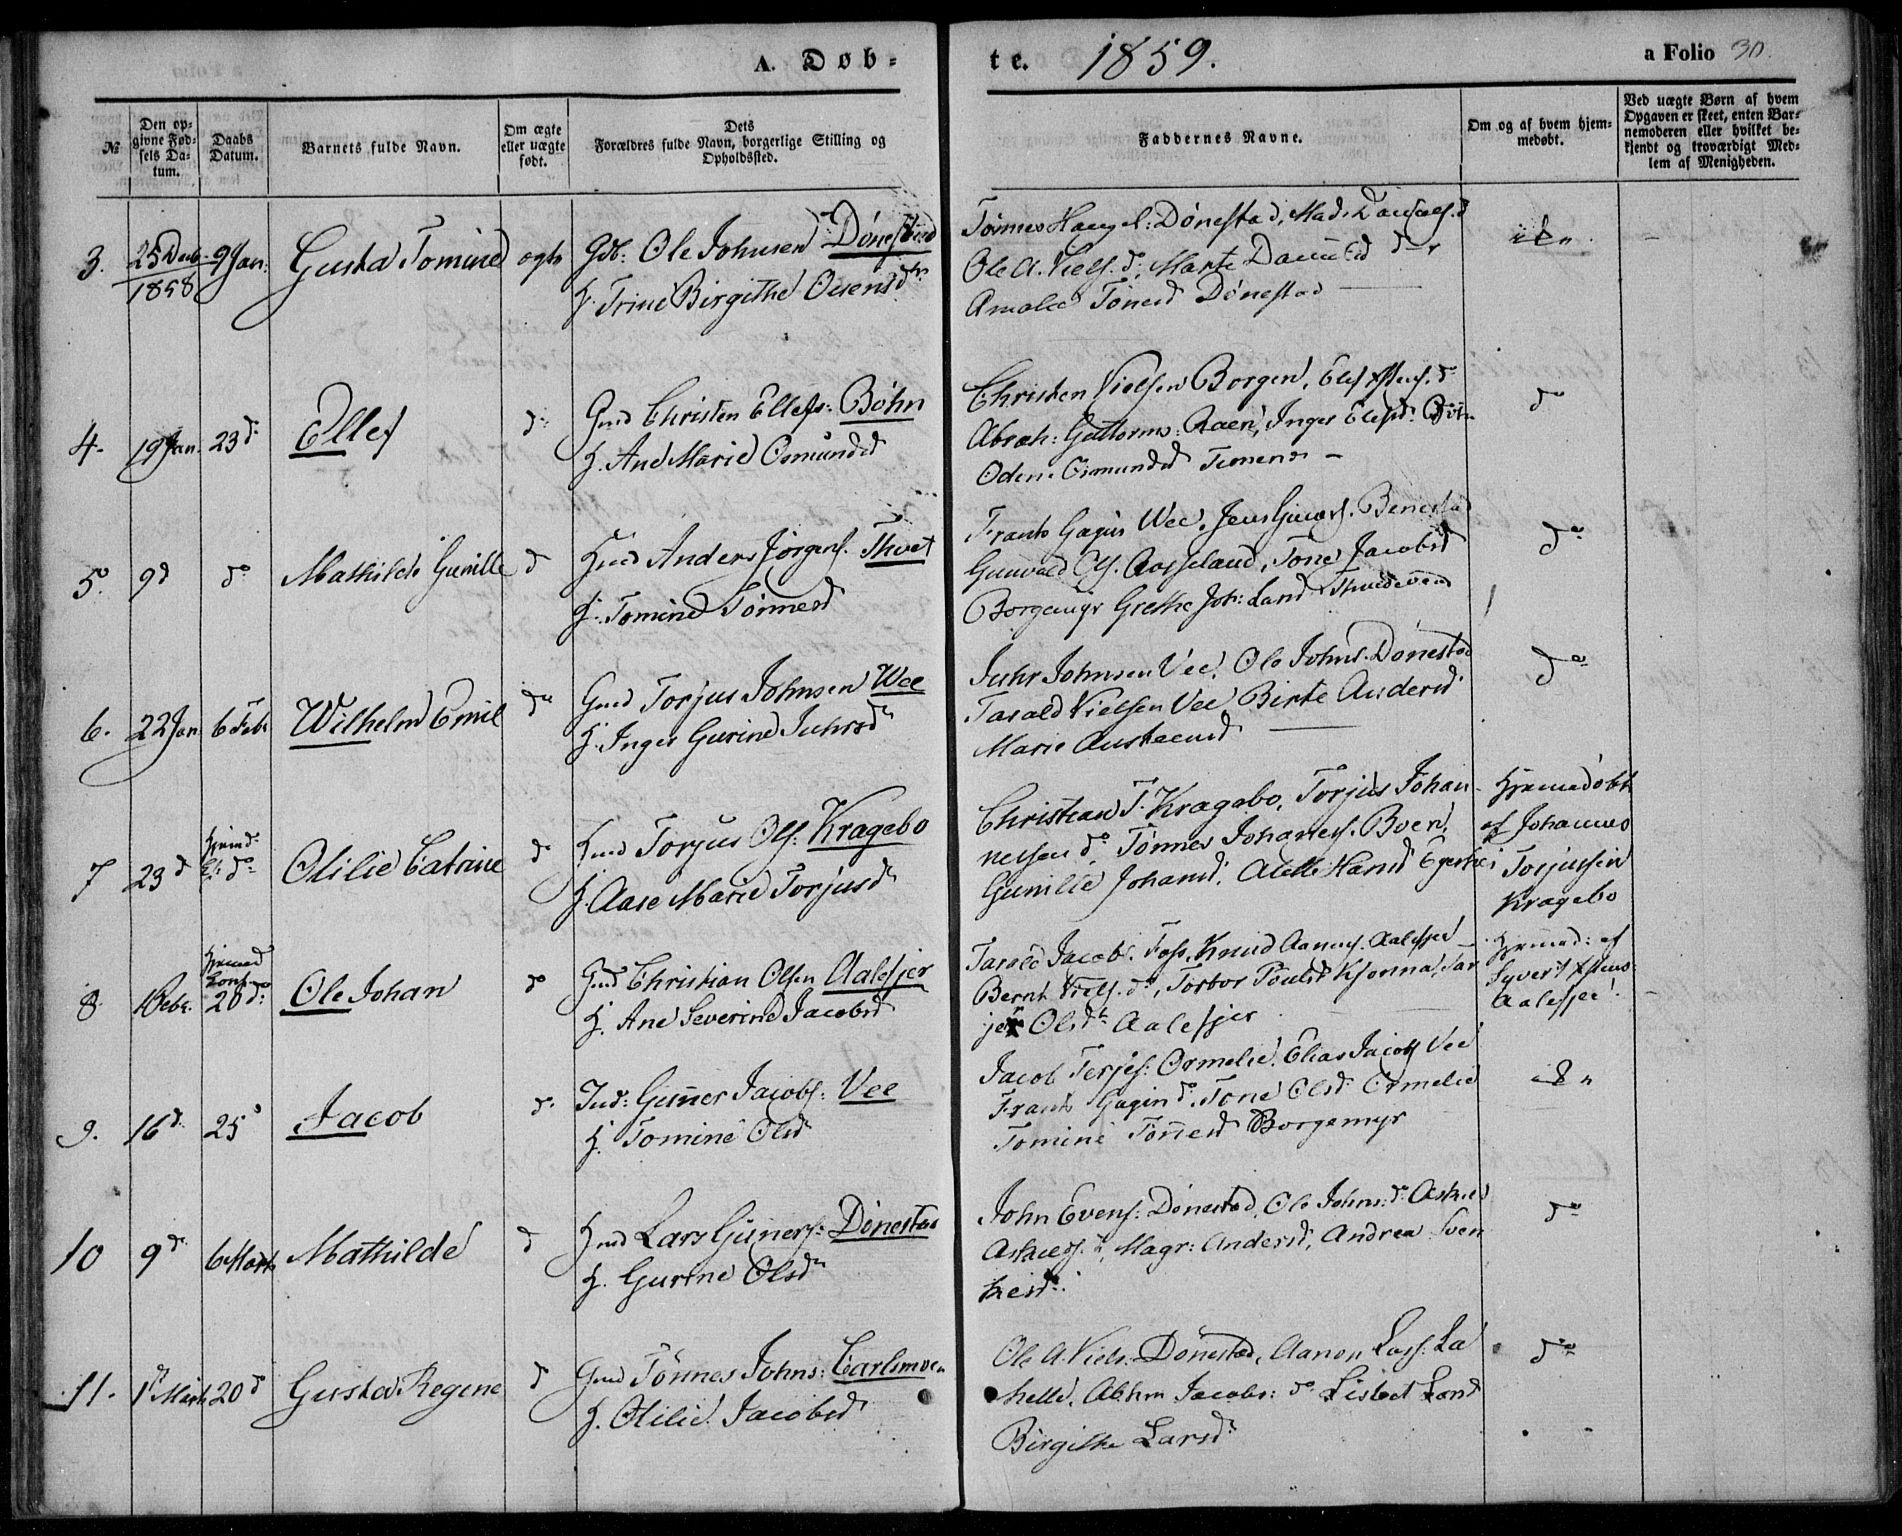 A. Døb-
te. 1859. a Folio 30.
№
Den opgivne Fødsels Datum.
Daabs Datum.
Barnets fulde Navn.
Om ægte eller uægte født.
Dets Forældres fulde Navn, borgerlige Stilling og Opholdssted.
Faddernes Navne.
Om og af hvem hjemmedøbt.
Ved uægte Børn af hvem Opgaven er skeet, enten Barnemoderen eller hvilket bekjendt og troværdigt Medlem af Menigheden.
3. 25 Decb. 1858 9 Jan: Gusta Tomine ægte Gdb. Ole Johnsen Dønestad
H. Trine Birgithe Olsensdtr
Dønestad,
Ole A. Niels. do, Marte do
Amalie Tønesd Dønestad
4. 19 Jan. 23 do Ellef do Gmd Christen Ellefs: Bøhn
H. Ane Marie Osmundsd
Christen Nielsen Borgen, do
Abrah: Guttorms: Raen, Inger Elefsd.
Osmundsd
do
5. 9 d do Mathilde Gunille d Gmd Anders Jørgens. Thvet
H. Tomine Tønnesd
Frants Gagin Wee, Jens Benestad
Gunvald Ols. Aasseland, Tone Jacobsd
Borgemyr Grethe Joh:
do
6. 22 Jan 6 Feb. Wilhelm Emil do Gmd Torjus Johnsen Wee
H. Inger Gurine Juhrsd
Juhr Johnsen Vee, Ole Johns. Dønestad
Tarald Nielsen Vee, Birte Andersd
Marie
do
7 23 d do Otilie Catrine do Gmd Torjus Ols: Kragebo
H. Aase Marie Torjusd
Christian T. Kragebo, Torjus Johan-
nessen do, Tønnes Johanes. Boen,
Gunille Johansd, Alette Hansd
Hjemmedøbt
af Johannes
Torjussen
Kragebo
8 20 do: Ole Johan do Gmd Christian Olsen Aalefjer
H. Ane Severine Jacobsd
Tarald Jacobs. Foss, Knud Aanens. Aalefjer
Bernt Niels. do, Torbor Poulsd
Olsdt Aalefjer
Hjemmed: af
Syvert
Aalefjer.
9. 16 d. 25 d Jacob d. Gunner Jacobs: Vee
H. Tomine Olsd
Jacob Terjes: Ormelie, Elias Jacobs Vee
Frants Gagin do. Tone Olsd Ormelie
Tomine Tønesd Borgemyr
10 9 d. 6 Marts Mathilde d Gmd Lars Guners: Dønestad
H. Gurine Olsd
John Evens: Dønestad, Ole Johns: do
Magr: Andersd, Andrea Sven
kesd.
do
11. 1 Marts 20 d Gusta Regine d Gmd Tønnes Johns: Carlsmoen
H. Otilie Jacobsd
Ole A. Niels. Dønestad, Aanon Lars. La
helle, Abhm Jacobs: do Lisbet
Birgithe Larsd
do